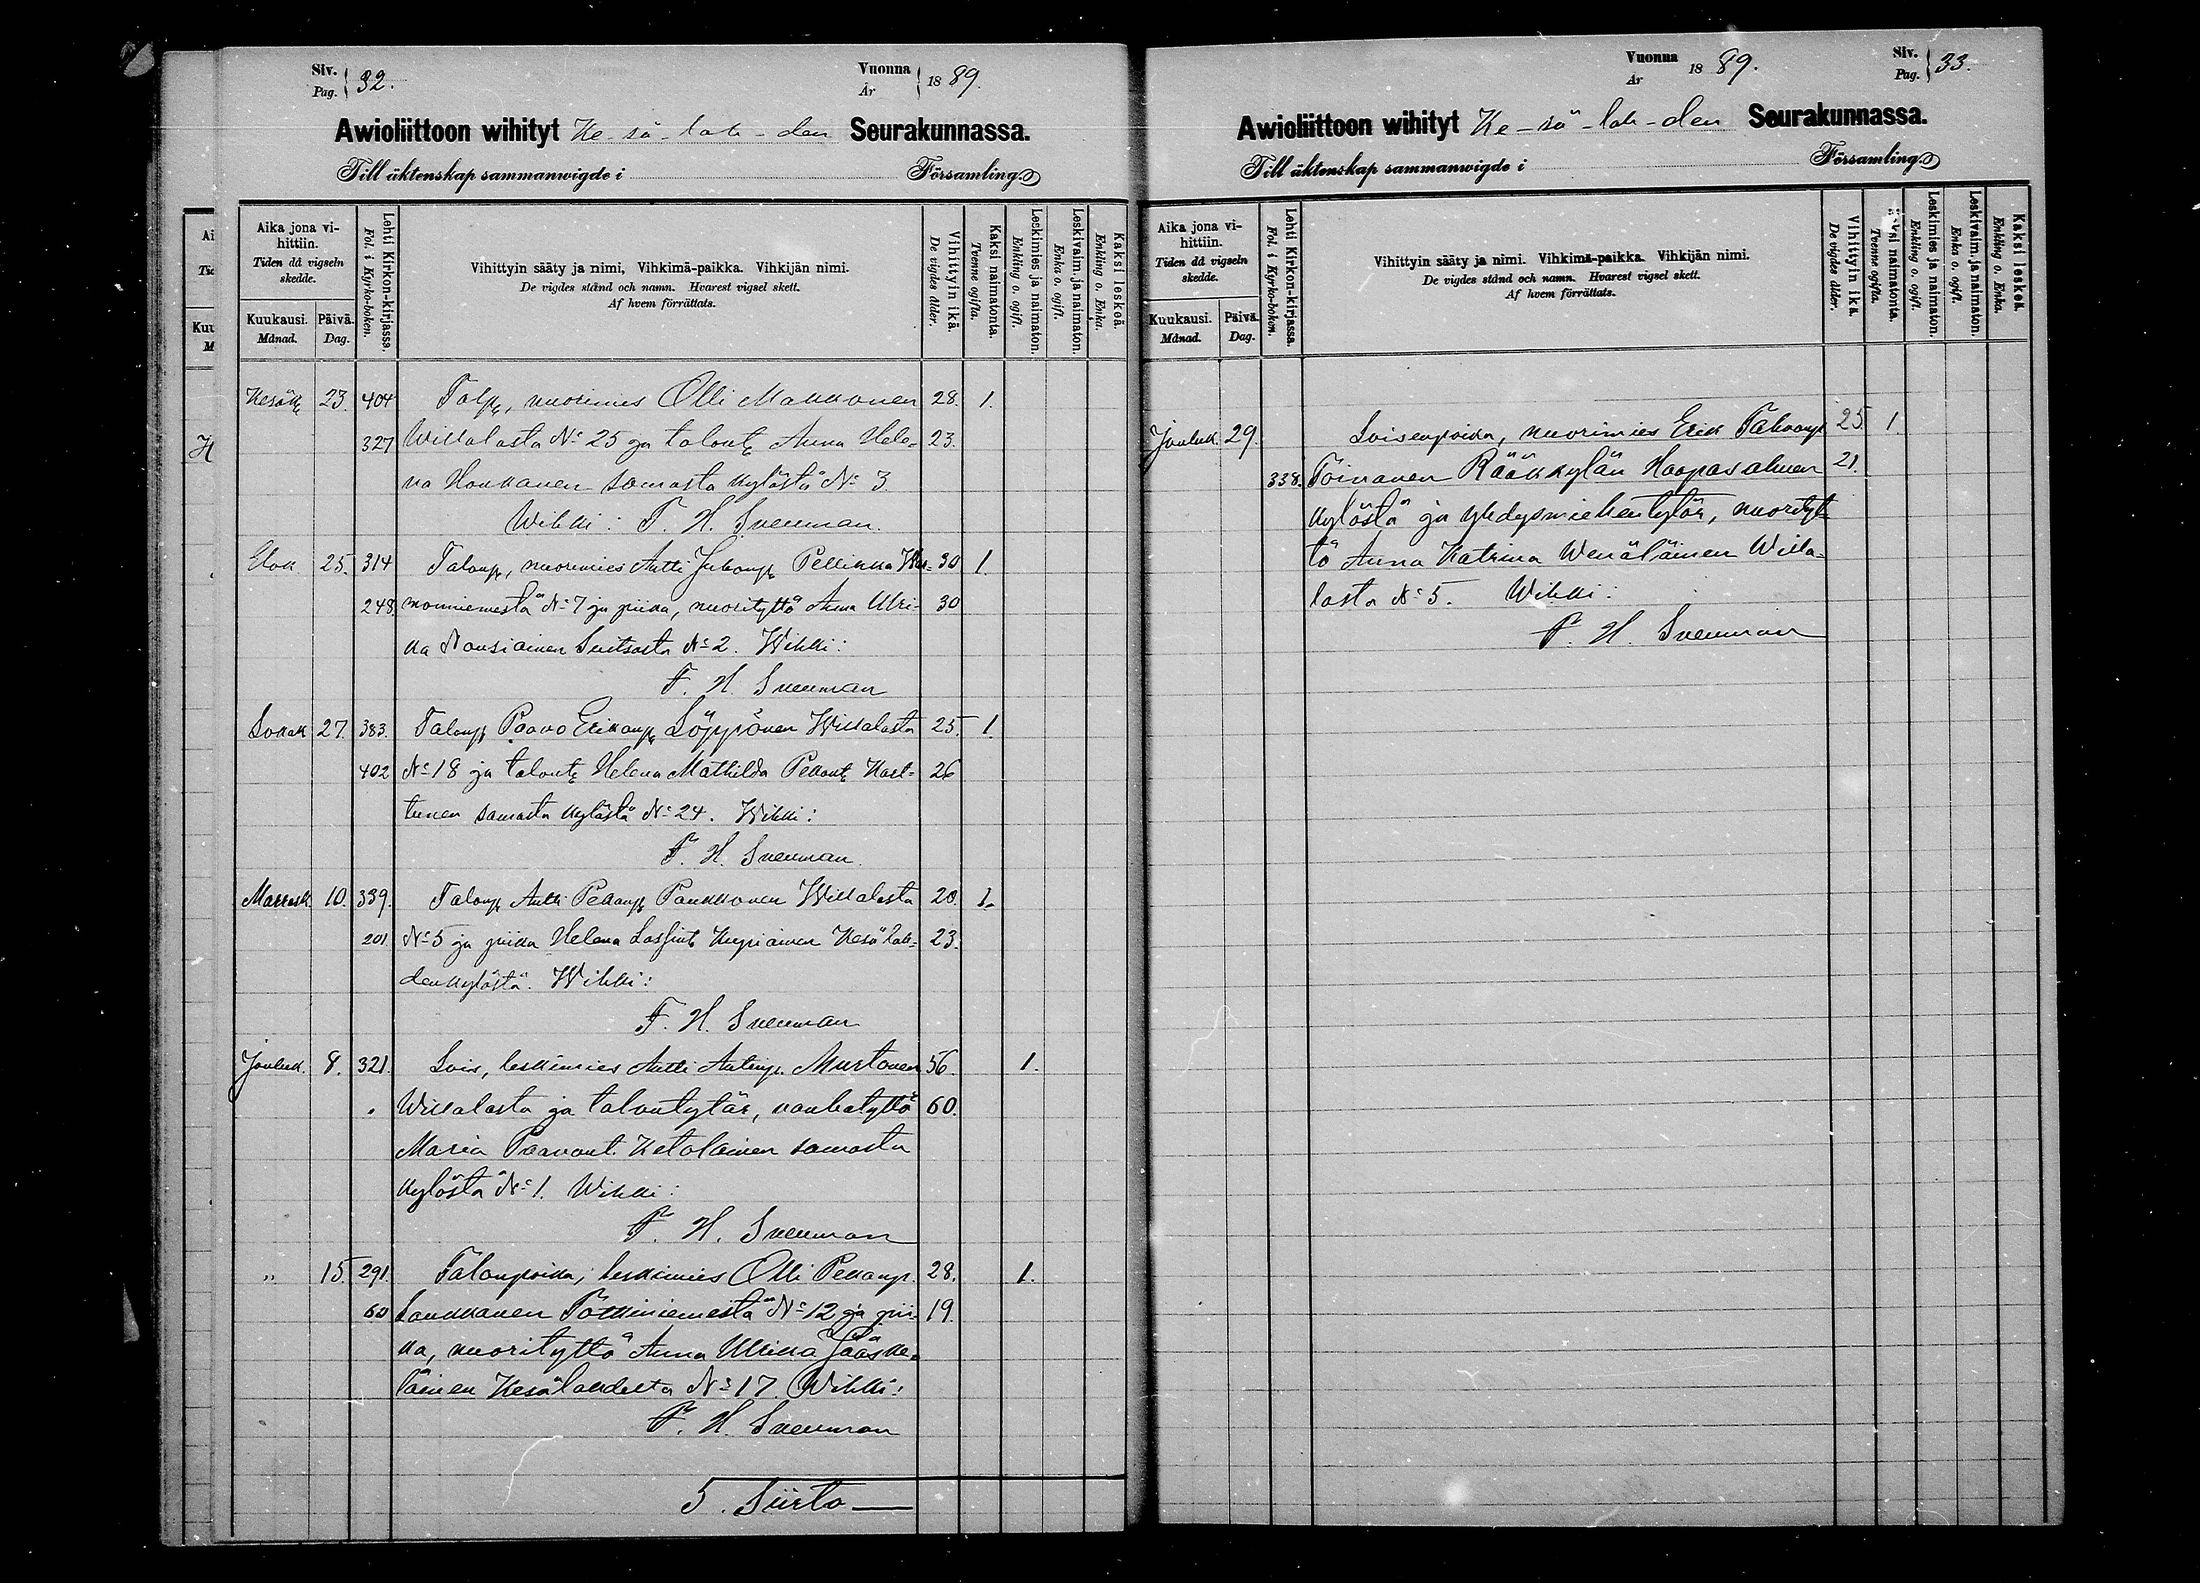 Siv. Pag. 32.
Vuonna År 1889.
Awioliittoon wihityt Ke-sä-lah-den Seurakunnassa.
Till äktenskap sammanwigde i Församling.
Aika jona vihittiin.
Tiden då vigseln skedde.
Kuukausi. Månad.
Päivä. Dag.
Lehti Kirkon-kirjassa.
Fol. i Kyrko-boken.
Vihittyin sääty ja nimi, Vihkimä-paikka. Vihkijän nimi.
De vigdes stånd och namn. Hvarest vigsel skett.
Af hvem förrättats.
Vihittyin ikä.
De vigdes ålder.
Kaksi naimatonta.
Tvenne ogifta.
Leskimies ja naimaton.
Enkling o. ogift.
Leskivaim. ja naimaton.
Enka o. ogift.
Kaksi leskeä.
Enkling o. Enka.
Kesäk 23. 404 Talp, nuorimies Olli Makkonen 28. 1.
327 Willalasta No 25 ja talont Anna Hele- 23.
na samasta kylästä No 3.
Wihki: F. H. Svenman.
Elok 25. 314 Talonp, nuorimies Antti Juhonp Pellikka 30 1.
248 No 7 ja piika, nuorityttö Anna Ulri- 30
ka Nousiainen Suitsasta No 2. Wihki:
F. H. Svenman
Lokak 27. 383. Talonp Paavo Erikonp Löppönen Willalasta 25. 1.
402 No 18 ja talont Helena Mathilda Pekont Kast- 26
tunen samasta kylästä No 24. Wihki:
F. H. Svenman.
Marrask. 10. 339. Talonp Antti Pekanp Pankkonen Willalasta 20. 1.
201. No 5 ja piika Helena Lassint Kupiainen Kesälah- 23.
denkylästä. Wihki:
F. H. Svenman
Jouluk. 8. 321. Lois, leskimies Antti Antinp. Murtonen 56. 1.
" Willalasta ja talontytär, vanhatyttö 60.
Maria Paavont. Ketolainen samasta
kylästä No 1. Wihki:
F. H. Svenman
" 15. 291. Talonpoika, leskimies Olli Pekanp. 28. 1.
60 Laukkanen Totkuniemestä No 12 ja pii- 19.
ka, nuorityttö Anna Ulrika Jääske-
läinen Kesälahdelta No 17. Wihki:
F. H. Svenman
5. Siirto
Vuonna År 1889.
Siv. Pag. 33.
Awioliittoon wihityt Ke-sä-lah-den Seurakunnassa.
Till äktenskap sammanwigde i Församling.
Aika jona vihittiin.
Tiden då vigseln skedde.
Kuukausi. Månad.
Päivä. Dag.
Lehti Kirkon-kirjassa.
Fol. i Kyrko-boken.
Vihittyin sääty ja nimi. Vihkimä-paikka. Vihkijän nimi.
De vigdes stånd och namn. Hvarest vigsel skett.
Af hvem förrättats.
Vihittyin ikä.
De vigdes ålder.
Kaksi naimatonta.
Tvenne ogifta.
Leskimies ja naimaton.
Enkling o. ogift.
Leskivaim. ja naimaton.
Enka o. ogift.
Kaksi leskeä.
Enkling o. Enka.
Jouluk. 29. Loisenpoika, nuorimies Erik 25 1.
338. Toivanen Rääkkylän Haapasalmen 21.
kylästä ja yhdysmiehentytär, nuorityt-
tö Anna Katrina Wenäläinen Willa-
lasta No 5. Wihki:
F. H. Svenman